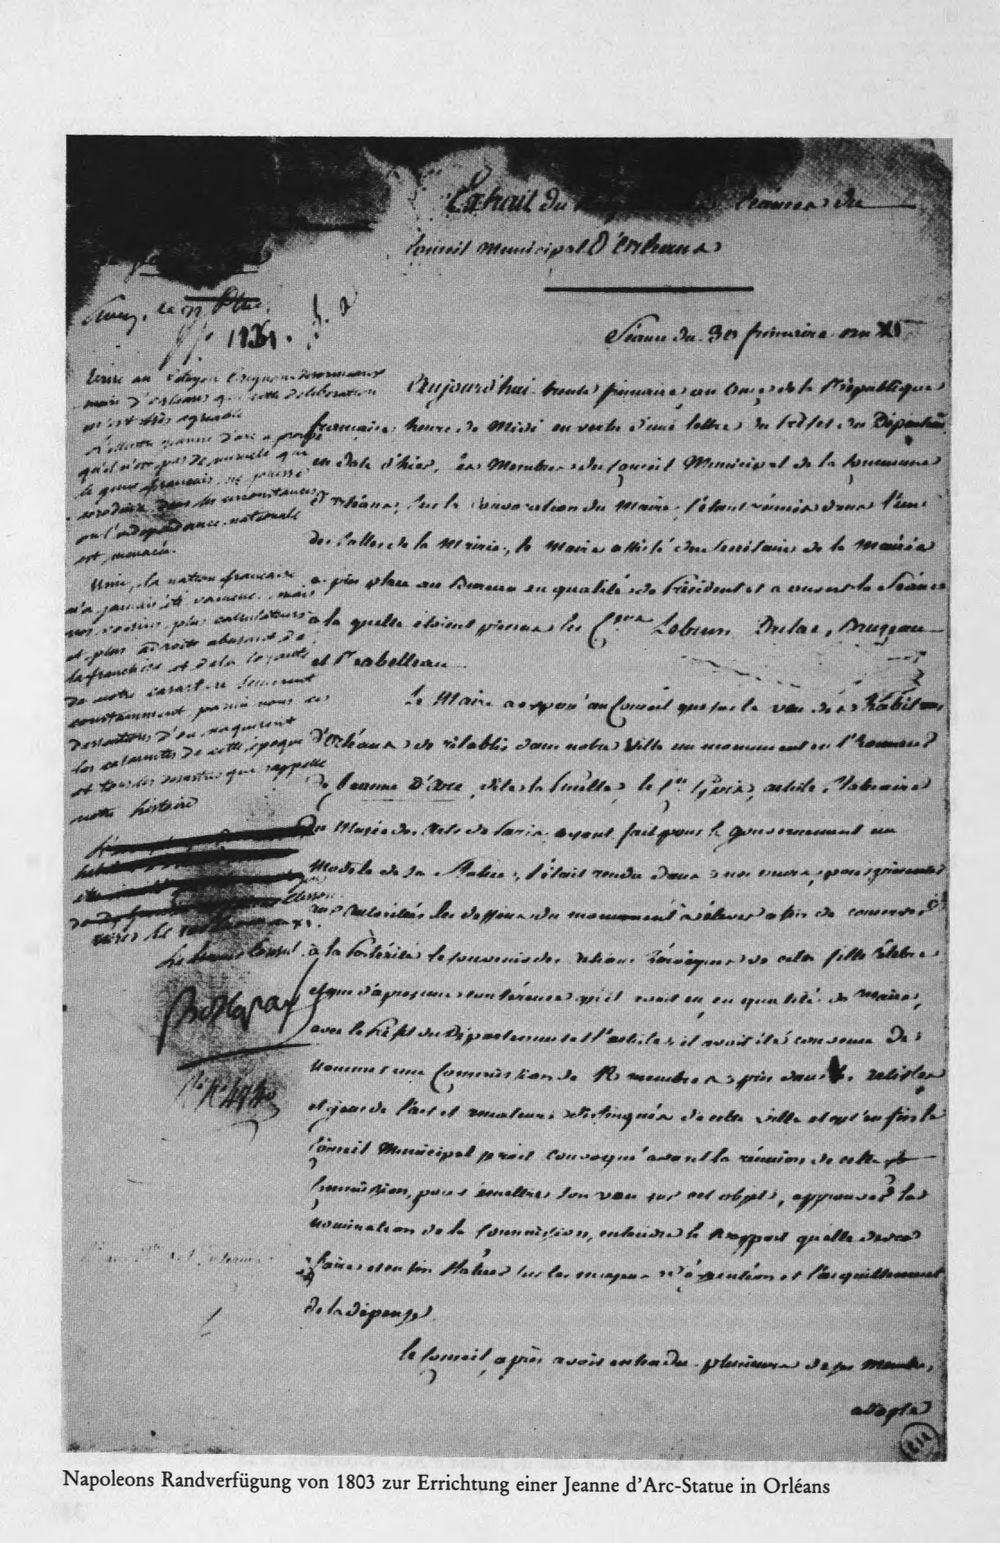 Extrait du Séances du
Conseil Municipal D'Orleans
Séance du 30 frimaire an XI
Aujourd'hui trente frimaire an Onze de la République
française heure de Midi en vertu d'une lettre du Préfet du Département
en date d'hier, les Membres du Conseil Municipal de la Commune
d'Orléans, sur la Convocation du Maire, s'étant réunis dans l'une
des Salles de la Mairie, le Maire assisté du Secrétaire de la Mairie
a pris place au Bureau en qualité de Président et a ouvert la Séance
à la quelle étoient présens les C.ens Lebrun, Dulac,
et
Le Maire a exposé au Conseil que sur le vœu des Habitans
d'Orléans de rétablir dans notre Ville un monument en l'honneur
de Jeanne D'Arc, dite la Pucelle, le artiste, Statuaire
du Musée des Arts de Paris, ayant fait pour le Gouvernement un
Modèle de Statue, s'était rendu dans nos murs, pour présenter
aux Autorités les dessins du monument à élever afin de conserver
à la Postérité le souvenir des actions héroïques de cette fille célèbre
et que d'après une conférence qu'il avoit eu, en qualité de Maire,
avec le Préfet du Département et l'artiste, il avoit été convenu de
Nommer une Commission de membres pris dans les Artistes
et gens de l'art et amateurs distingués de cette ville et qu'enfin le
Conseil Municipal seroit convoqué avant la réunion de cette
Commission, pour émettre son vœu sur cet objet, approuver la
nomination de la Commission, entendre le Rapport qu'elle devra
faire et enfin Statuer sur les moyens d'exécution et l'acquittement
de la dépense.
Le Conseil, après avoir entendu plusieurs de ses Membres,
adopte
Ecrire au Citoyen Crignon-Desormeaux
maire d'Orléans que cette délibération
m'est très agréable
L'illustre Jeanne d'Arc a prouvé
qu'il n'est pas de miracle que
le génie français ne puisse
produire dans les circonstances
où l'indépendance nationale
est menacée.
Unie, la nation française
n'a jamais été vaincue, mais
nos voisins plus calculateurs
et plus adroits abusant de
la franchise et de la loyauté
de notre caractère semèrent
constamment parmi nous ces
dissentions d'où naquirent
les calamités de cette époque
et tous les désastres que rappelle
notre histoire
Le premier Consul
Bonaparte
Napoleons Randverfügung von 1803 zur Errichtung einer Jeanne d'Arc-Statue in Orléans